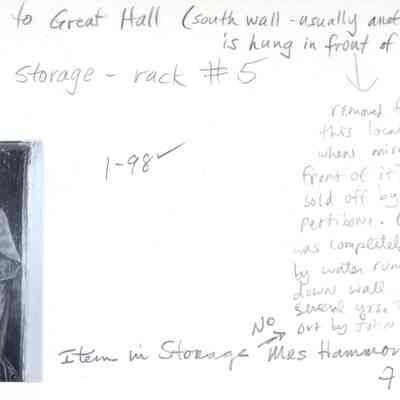 to Great Hall (south wall - usually anot
is hung in front of
storage - rack # 5
removed f
this loca
when mirr
front of it
sold off by
Pettibone. (
was completel
by water run
down wall
several yrs.
out by John
1-98 ✓
No
Item in Storage Mrs Hammon
7